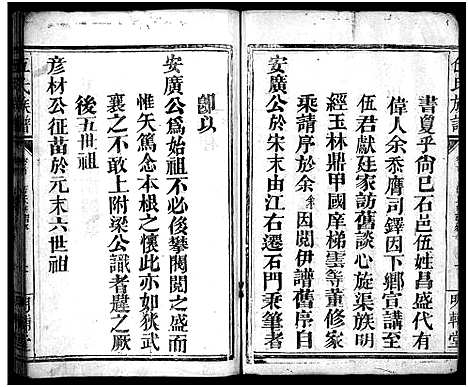 伍氏族譜
書夏乎尙巳石邑伍姓昌盛代有
偉人余忝膺司鐸因下鄉宣講至
伍君獻廷家訪舊談心旋渠族明
經玉林鼎甲國庠梯雲等董修家
乘請序於余余因閱伊譜舊序自
安廣公於宋末由江右遷石門秉筆者
卽以
安廣公爲始祖不必後攀閥閱之盛而
惟矢篤念本根之懷此亦如狄武
襄之不敢上附梁公識者韙之厥
後五世祖
彥材公征苗於元末六世祖
明輔堂